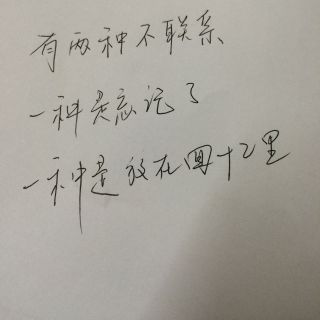 有两种不联系
一种是忘记了
一种是放在回忆里